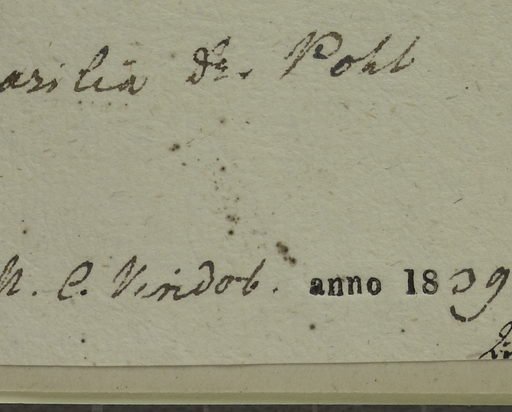 asilia dr. Pohl
M. C. Vindob. anno 1839